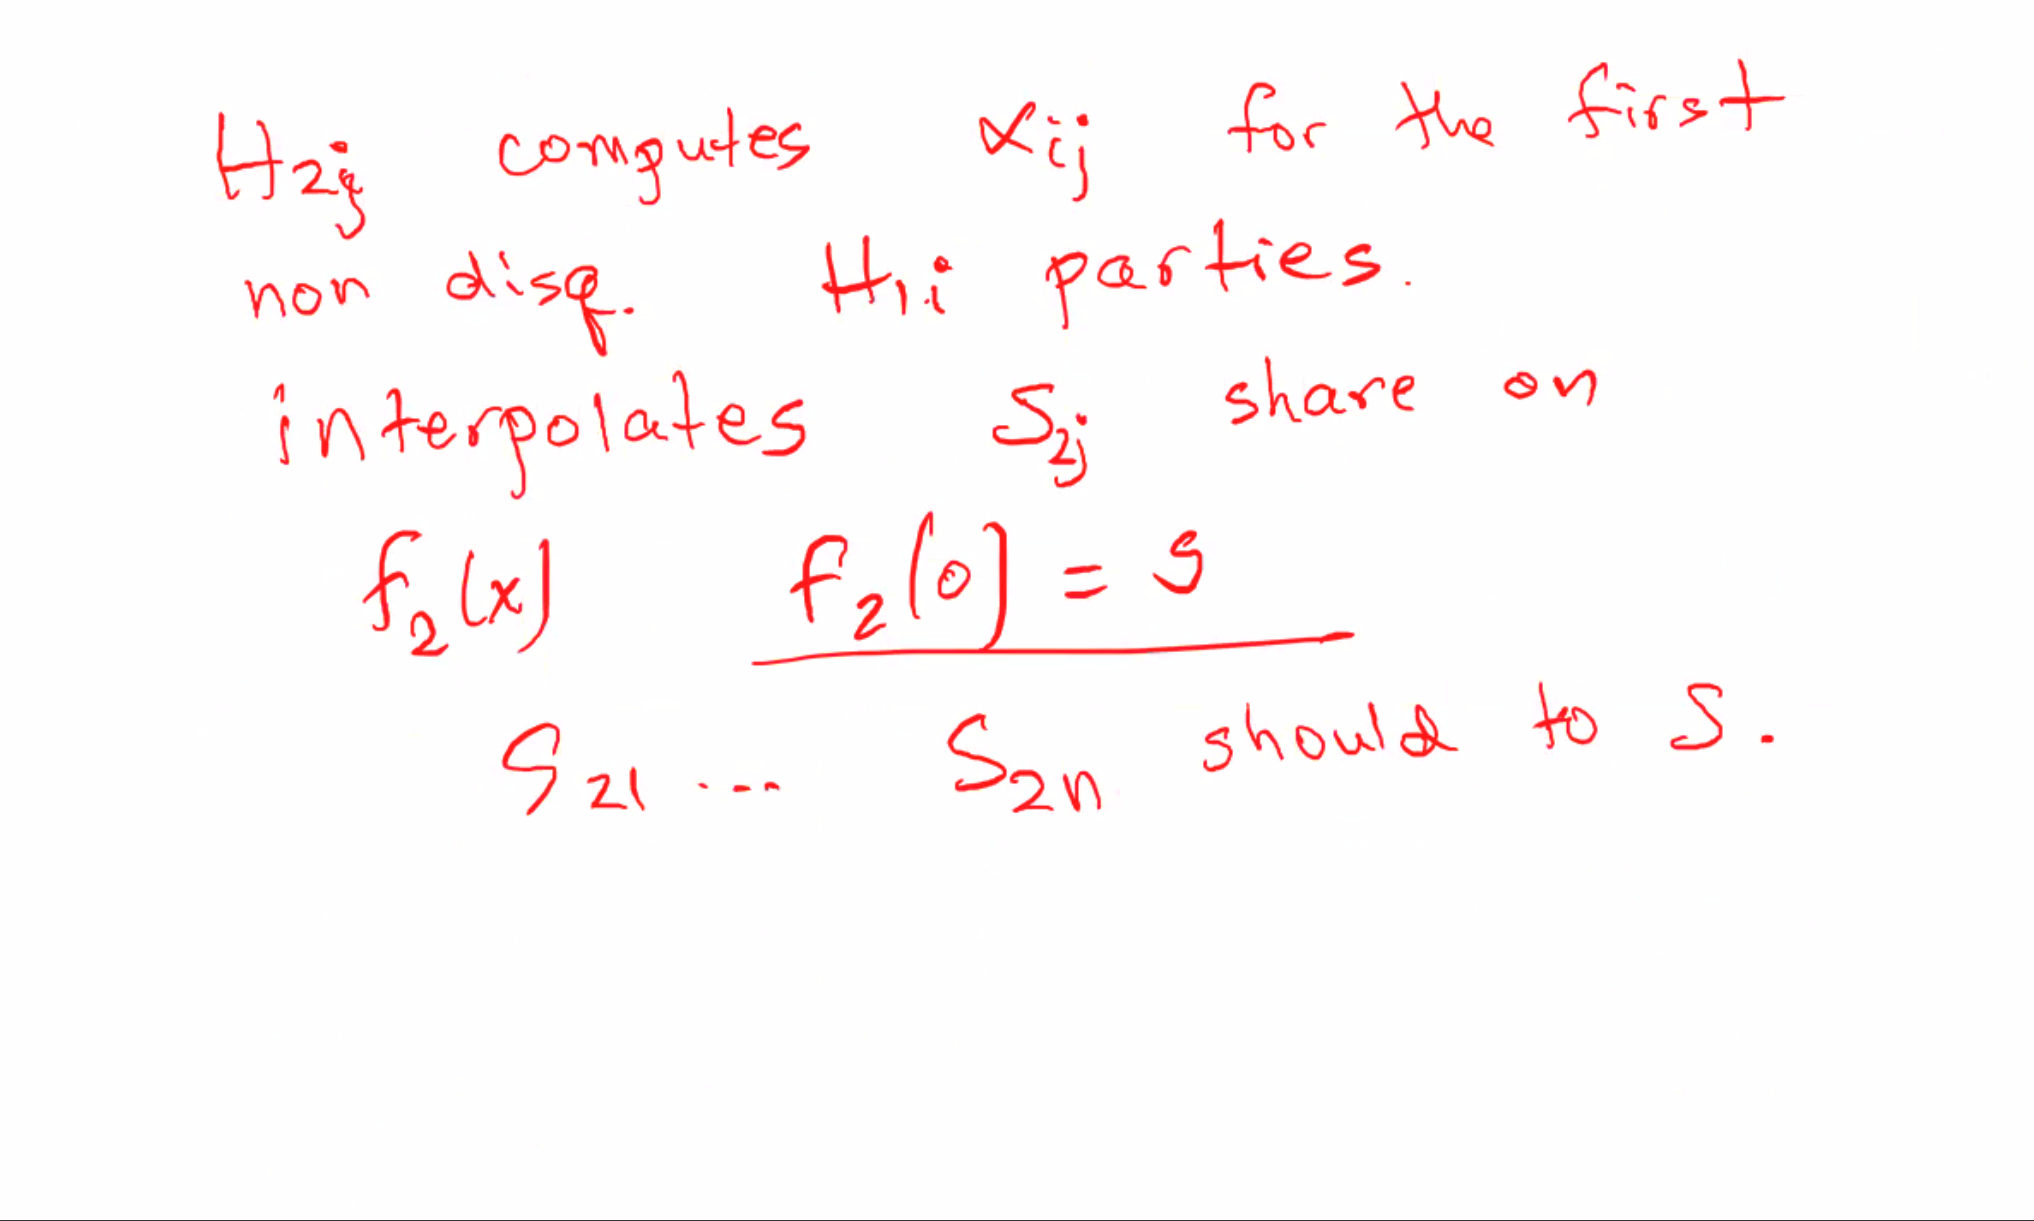 H₂ⱼ computes αᵢⱼ for the first
non disq. H₁,ᵢ parties.
interpolates S₂ⱼ share on
f₂(x) f₂(0) = s
S₂₁ ... S₂ₙ should to S.